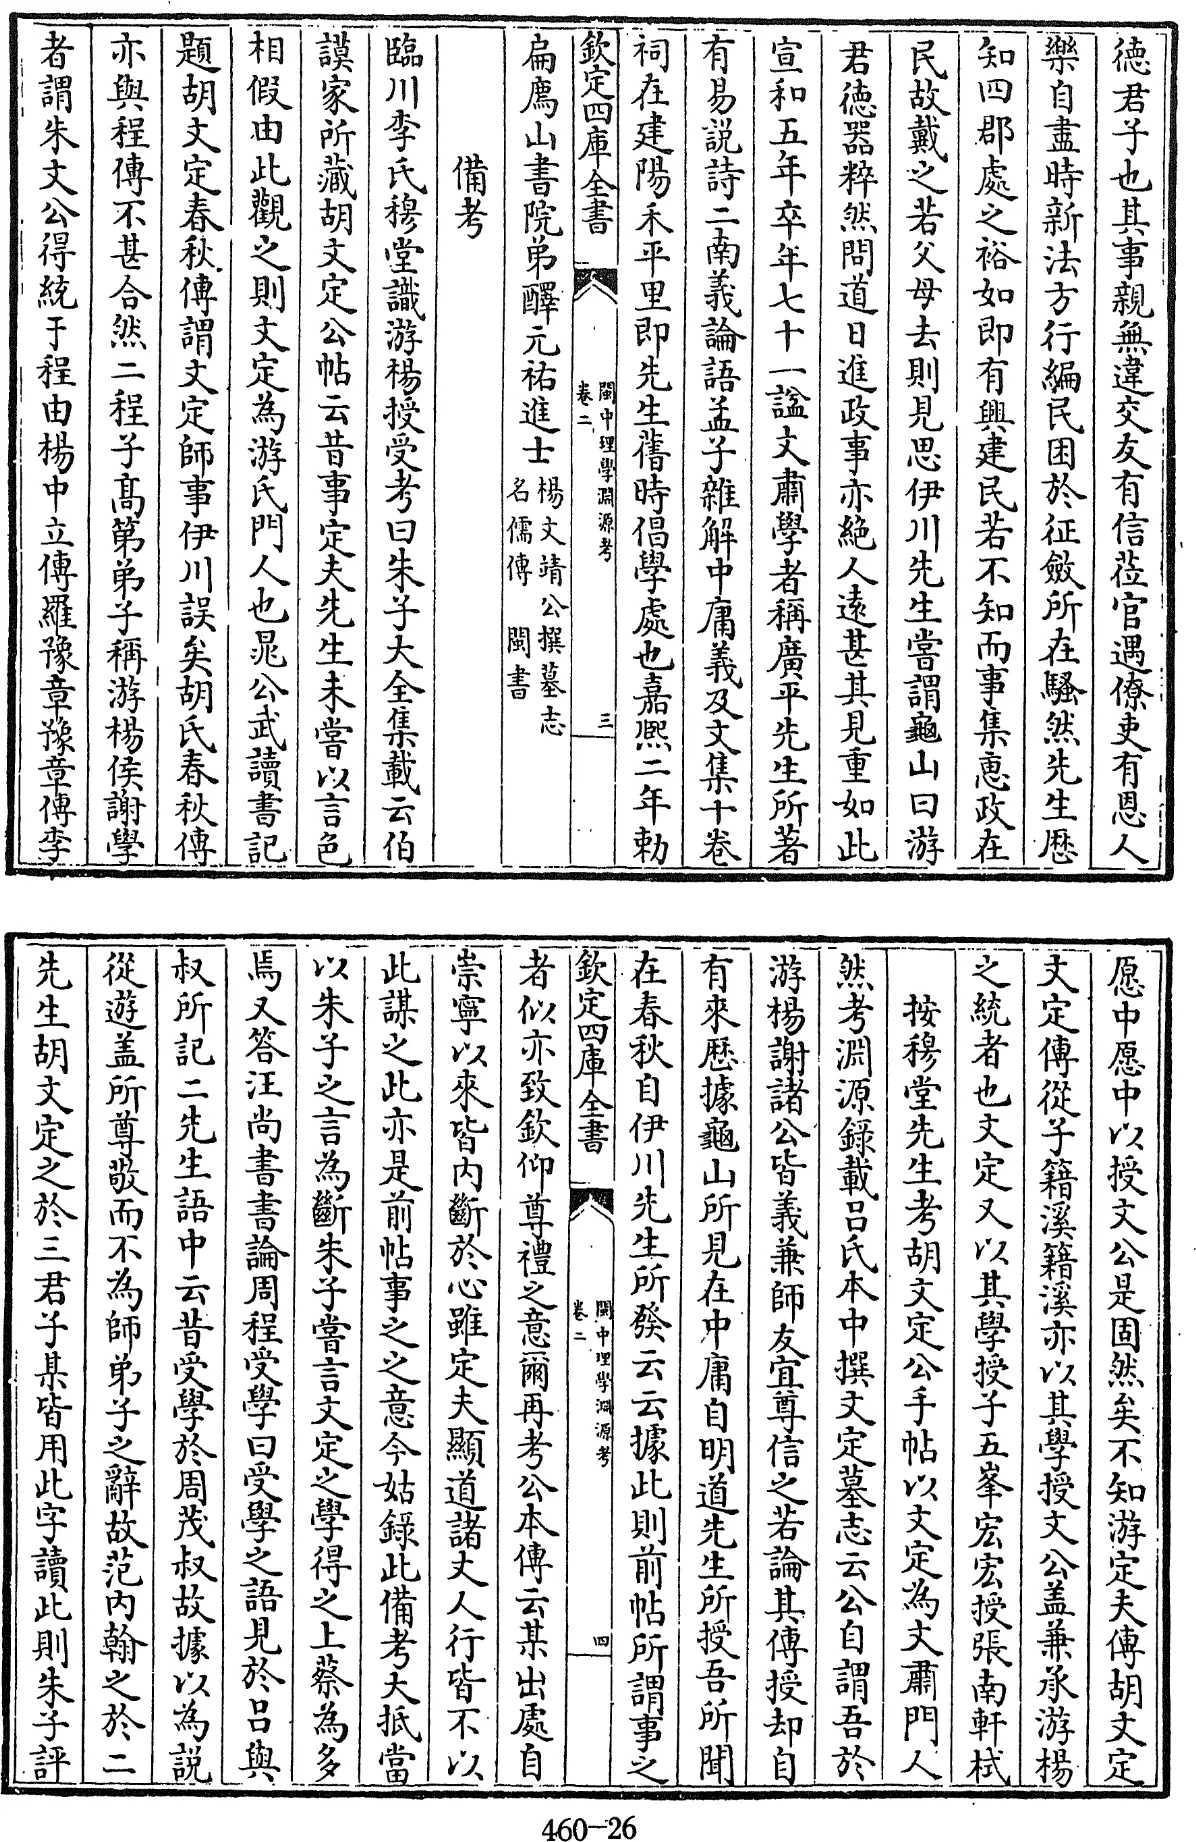 德君子也其事親無違交友有信莅官遇僚吏有恩人
樂自盡時新法方行編民困於征斂所在騷然先生歴
知四郡處之裕如即有興建民若不知而事集惠政在
民故戴之若父母去則見思伊川先生嘗謂龜山曰游
君徳器粹然問道日進政事亦絶人逺甚其見重如此
宣和五年卒年七十一諡文肅學者稱廣平先生所著
有易説詩二南義論語孟子雜解中庸義及文集十卷
祠在建陽禾平里即先生舊時倡學處也嘉熈二年勅
欽定四庫全書
閩中理學淵源考
卷二
三
扁廌山書院弟醳元祐進士
楊文靖公撰墓志
名儒傳 閩書
備考
臨川李氏穆堂識游楊授受考曰朱子大全集載云伯
謨家所藏胡文定公帖云昔事定夫先生未嘗以言色
相假由此觀之則文定為游氏門人也晁公武讀書記
題胡文定春秋傳謂文定師事伊川誤矣胡氏春秋傳
亦與程傳不甚合然二程子高第弟子稱游楊侯謝學
者謂朱文公得統于程由楊中立傳羅豫章豫章傳李
愿中愿中以授文公是固然矣不知游定夫傳胡文定
文定傳從子籍溪籍溪亦以其學授文公盖兼承游楊
之統者也文定又以其學授子五峯宏宏授張南軒栻
按穆堂先生考胡文定公手帖以文定為文肅門人
然考淵源錄載吕氏本中撰文定墓志云公自謂吾於
游楊謝諸公皆義兼師友宜尊信之若論其傳授却自
有來歴據龜山所見在中庸自明道先生所授吾所聞
在春秋自伊川先生所發云云據此則前帖所謂事之
欽定四庫全書
閩中理學淵源考
卷二
四
者似亦致欽仰尊禮之意爾再考公本傳云某出處自
崇寧以來皆内斷於心雖定夫顯道諸丈人行皆不以
此謀之此亦是前帖事之之意今姑錄此備考大抵當
以朱子之言為斷朱子嘗言文定之學得之上蔡為多
焉又答汪尚書書論周程受學曰受學之語見於吕與
叔所記二先生語中云昔受學於周茂叔故據以為説
從遊盖所尊敬而不為師弟子之辭故范内翰之於二
先生胡文定之於三君子某皆用此字讀此則朱子評
460-26